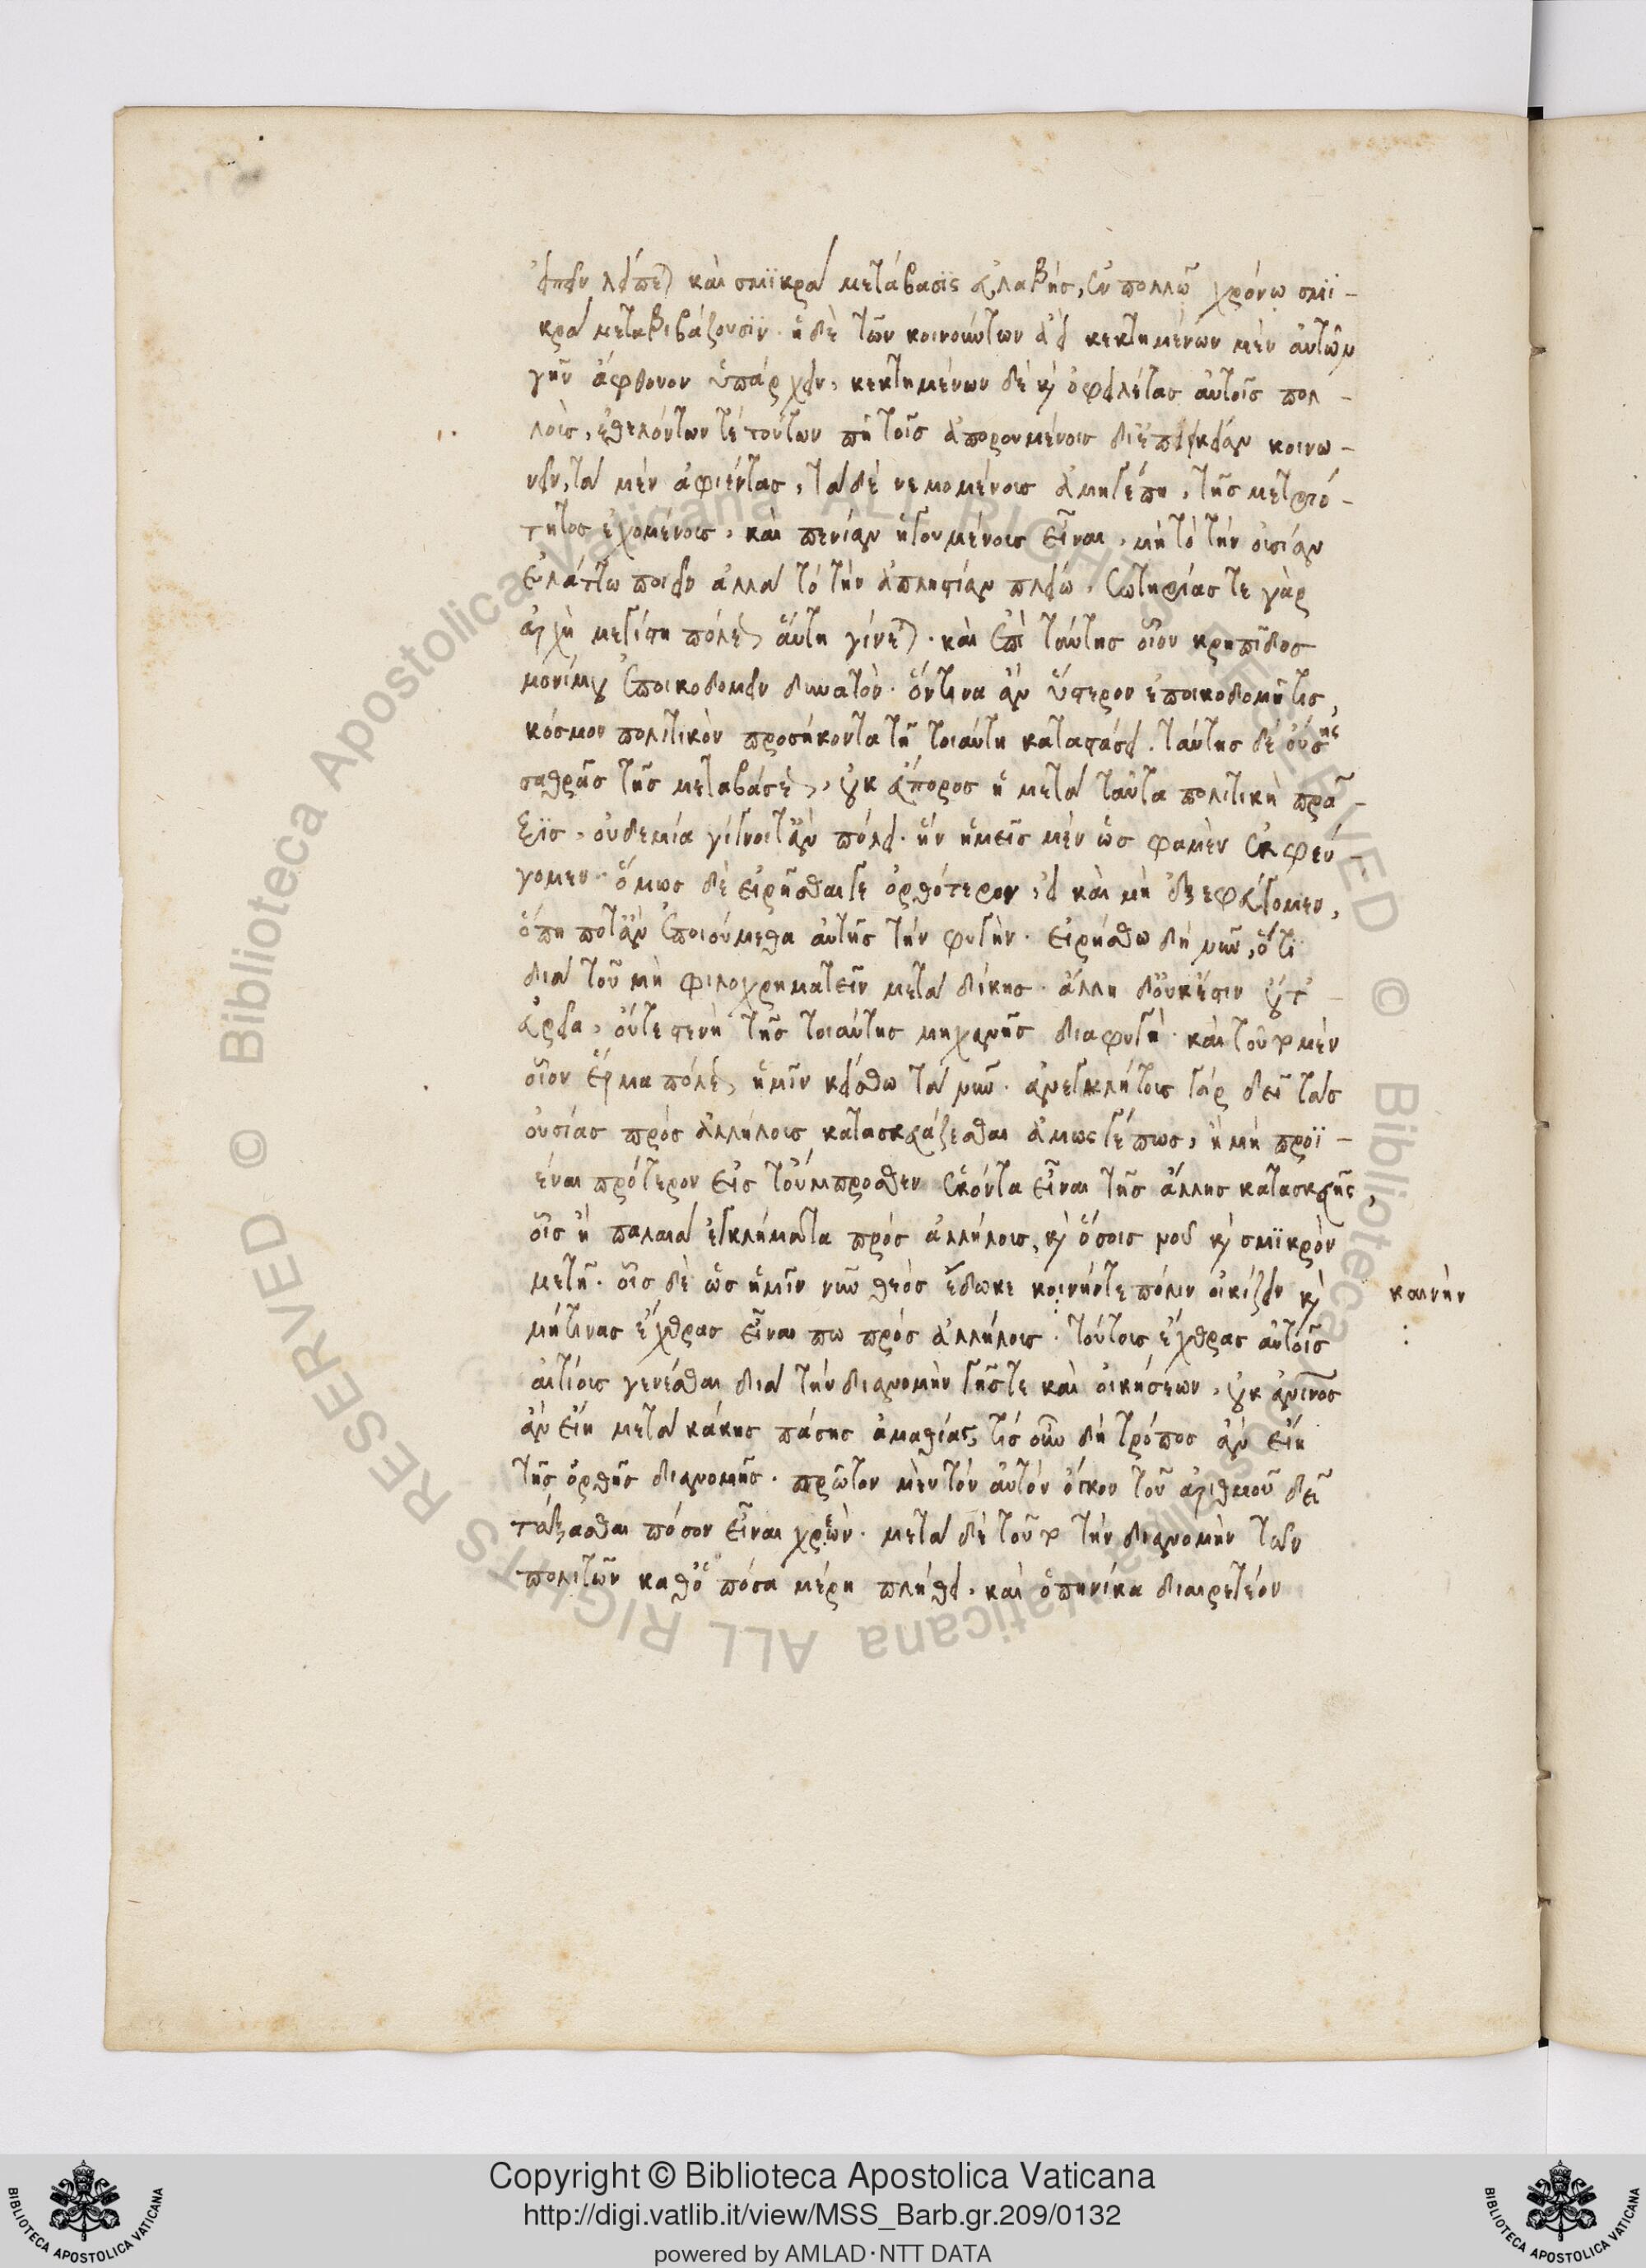 εἰπεῖν λείπεται καὶ σμϊκρὰ μετάβασϊς εὐλαβὴς, ἐν πολλῶ χρόνω σμϊ-
κρὰ μεταβιβάζουσϊν· ἡ δὲ τῶν κοινούντων ἀεὶ κεκτημένων μὲν αὐτῶν
γῆν ἄφθονον ὑπάρχειν, κεκτημένων δὲ κ̀ ὀφειλέτας αὐτοῖς πολ-
λοὺς, ἐθελόντων τὲ τούτων πῆ τοῖς ἀπορουμένοις δι' ἐπιείκειαν κοινω-
νεῖν, τὰ μὲν ἀφιέντας, τὰ δὲ νεμομένους ἀμηγέπη, τῆς μετριό-
τητος ἐχομένους, καὶ πενίαν ἡγουμένους εἶναι, μὴ τὸ τὴν οὐσίαν
ἐλάττω ποιεῖν ἀλλὰ τὸ τὴν ἀπληστίαν πλείω. Σωτηρίας τε γὰρ
ἀρχὴ μεγίστη πόλεως αὕτη γίνεται· καὶ ἐπὶ ταύτης οἷον κρηπῖδος
μονίμου ἐποικοδομεῖν δυνατὸν· ὅντινα ἂν ὕστερον ἐποικοδομῆ τις,
κόσμον πολιτικὸν προσήκοντα τῆ τοιαύτη καταστάσει. ταύτης δὲ οὔσης
σαθρᾶς τῆς μεταβάσεως, οὐκ εὔπορος ἡ μετὰ ταῦτα πολιτικὴ πρᾶ-
ξϊς, οὐδεμία γίγνοιτ' ἂν πόλει· ἣν ἡμεῖς μὲν ὥς φαμὲν ἐκφεύ-
γομεν· ὅμως δὲ εἰρῆσθαί γε ὀρθότερον, εἰ καὶ μὴ ἐξεφεύγομεν,
ὅπη ποτ' ἂν ἐποιούμεθα αὐτῆς τὴν φυγὴν· εἰρήσθω δὴ νῦν, ὅτϊ
διὰ τοῦ μὴ φιλοχρηματεῖν μετὰ δίκης· ἄλλη δ' οὐκ ἔστιν οὔτ'
εὐρεῖα, οὔτε στενὴ τῆς τοιαύτης μηχανῆς διαφυγὴ· καὶ τοῦτο μὲν
οἷον ἕρμα πόλεως ἡμῖν κείσθω τὰ νῦν· ἀνεγκλήτους γὰρ δεῖ τὰς
οὐσίας πρὸς ἀλλήλους κατασκευάζεσθαι ἀμωσγέπως, ἢ μὴ προϊ-
έναι πρότερον εἰς τοὔμπροσθεν ἑκόντα εἶναι τῆς ἄλλης κατασκευῆς,
οἷς ᾖ παλαιὰ ἐγκλήματα πρὸς ἀλλήλους, κ̀ ὅσοις νοῦ κ̀ σμϊκρὸν
μετῆ· οἷς δὲ ὡς ἡμῖν νῦν θεὸς ἔδωκε κοινήντε πόλιν οἰκίζειν κ̀ καινὴν
μήτινας ἔχθρας εἶναι πω πρὸς ἀλλήλους· τούτους ἔχθρας αὐτοῖς
αἰτίους γενέσθαι διὰ τὴν διανομὴν γῆςτε καὶ οἰκήσεων, οὐκ ἀνθρώπινος
ἂν εἴη μετὰ κάκης πάσης ἀμαθίας, τίς οὖν δὴ τρόπος ἂν εἴη
τῆς ὀρθῆς διανομῆς· πρῶτον μὲν τὸν αὐτὸν ὄγκον τοῦ ἀριθμοῦ δεῖ
τάξασθαι πόσον εἶναι χρεὼν· μετὰ δὲ τοῦτο τὴν διανομὴν τῶν
πολιτῶν καθ' ὃ πόσα μέρη πλήθει· καὶ ὁπηνίκα διαιρετέον
© Biblioteca Apostolica Vaticana ALL RIGHTS RESERVED © Biblioteca Apostolica Vaticana ALL RIGHTS RESERVED
Copyright © Biblioteca Apostolica Vaticana
http://digi.vatlib.it/view/MSS_Barb.gr.209/0132
powered by AMLAD·NTT DATA
BIBLIOTECA APOSTOLICA VATICANA
BIBLIOTECA APOSTOLICA VATICANA